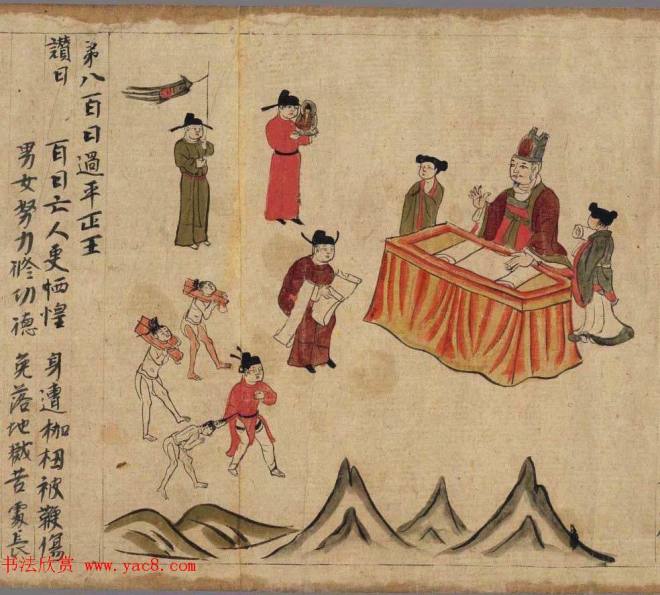 弟八百日過平正王
讚曰 百日亡人更恓惶 身遭枷杻被鞭傷
男女努力修功德 免落地獄苦處長
书法欣赏 www.yac8.com